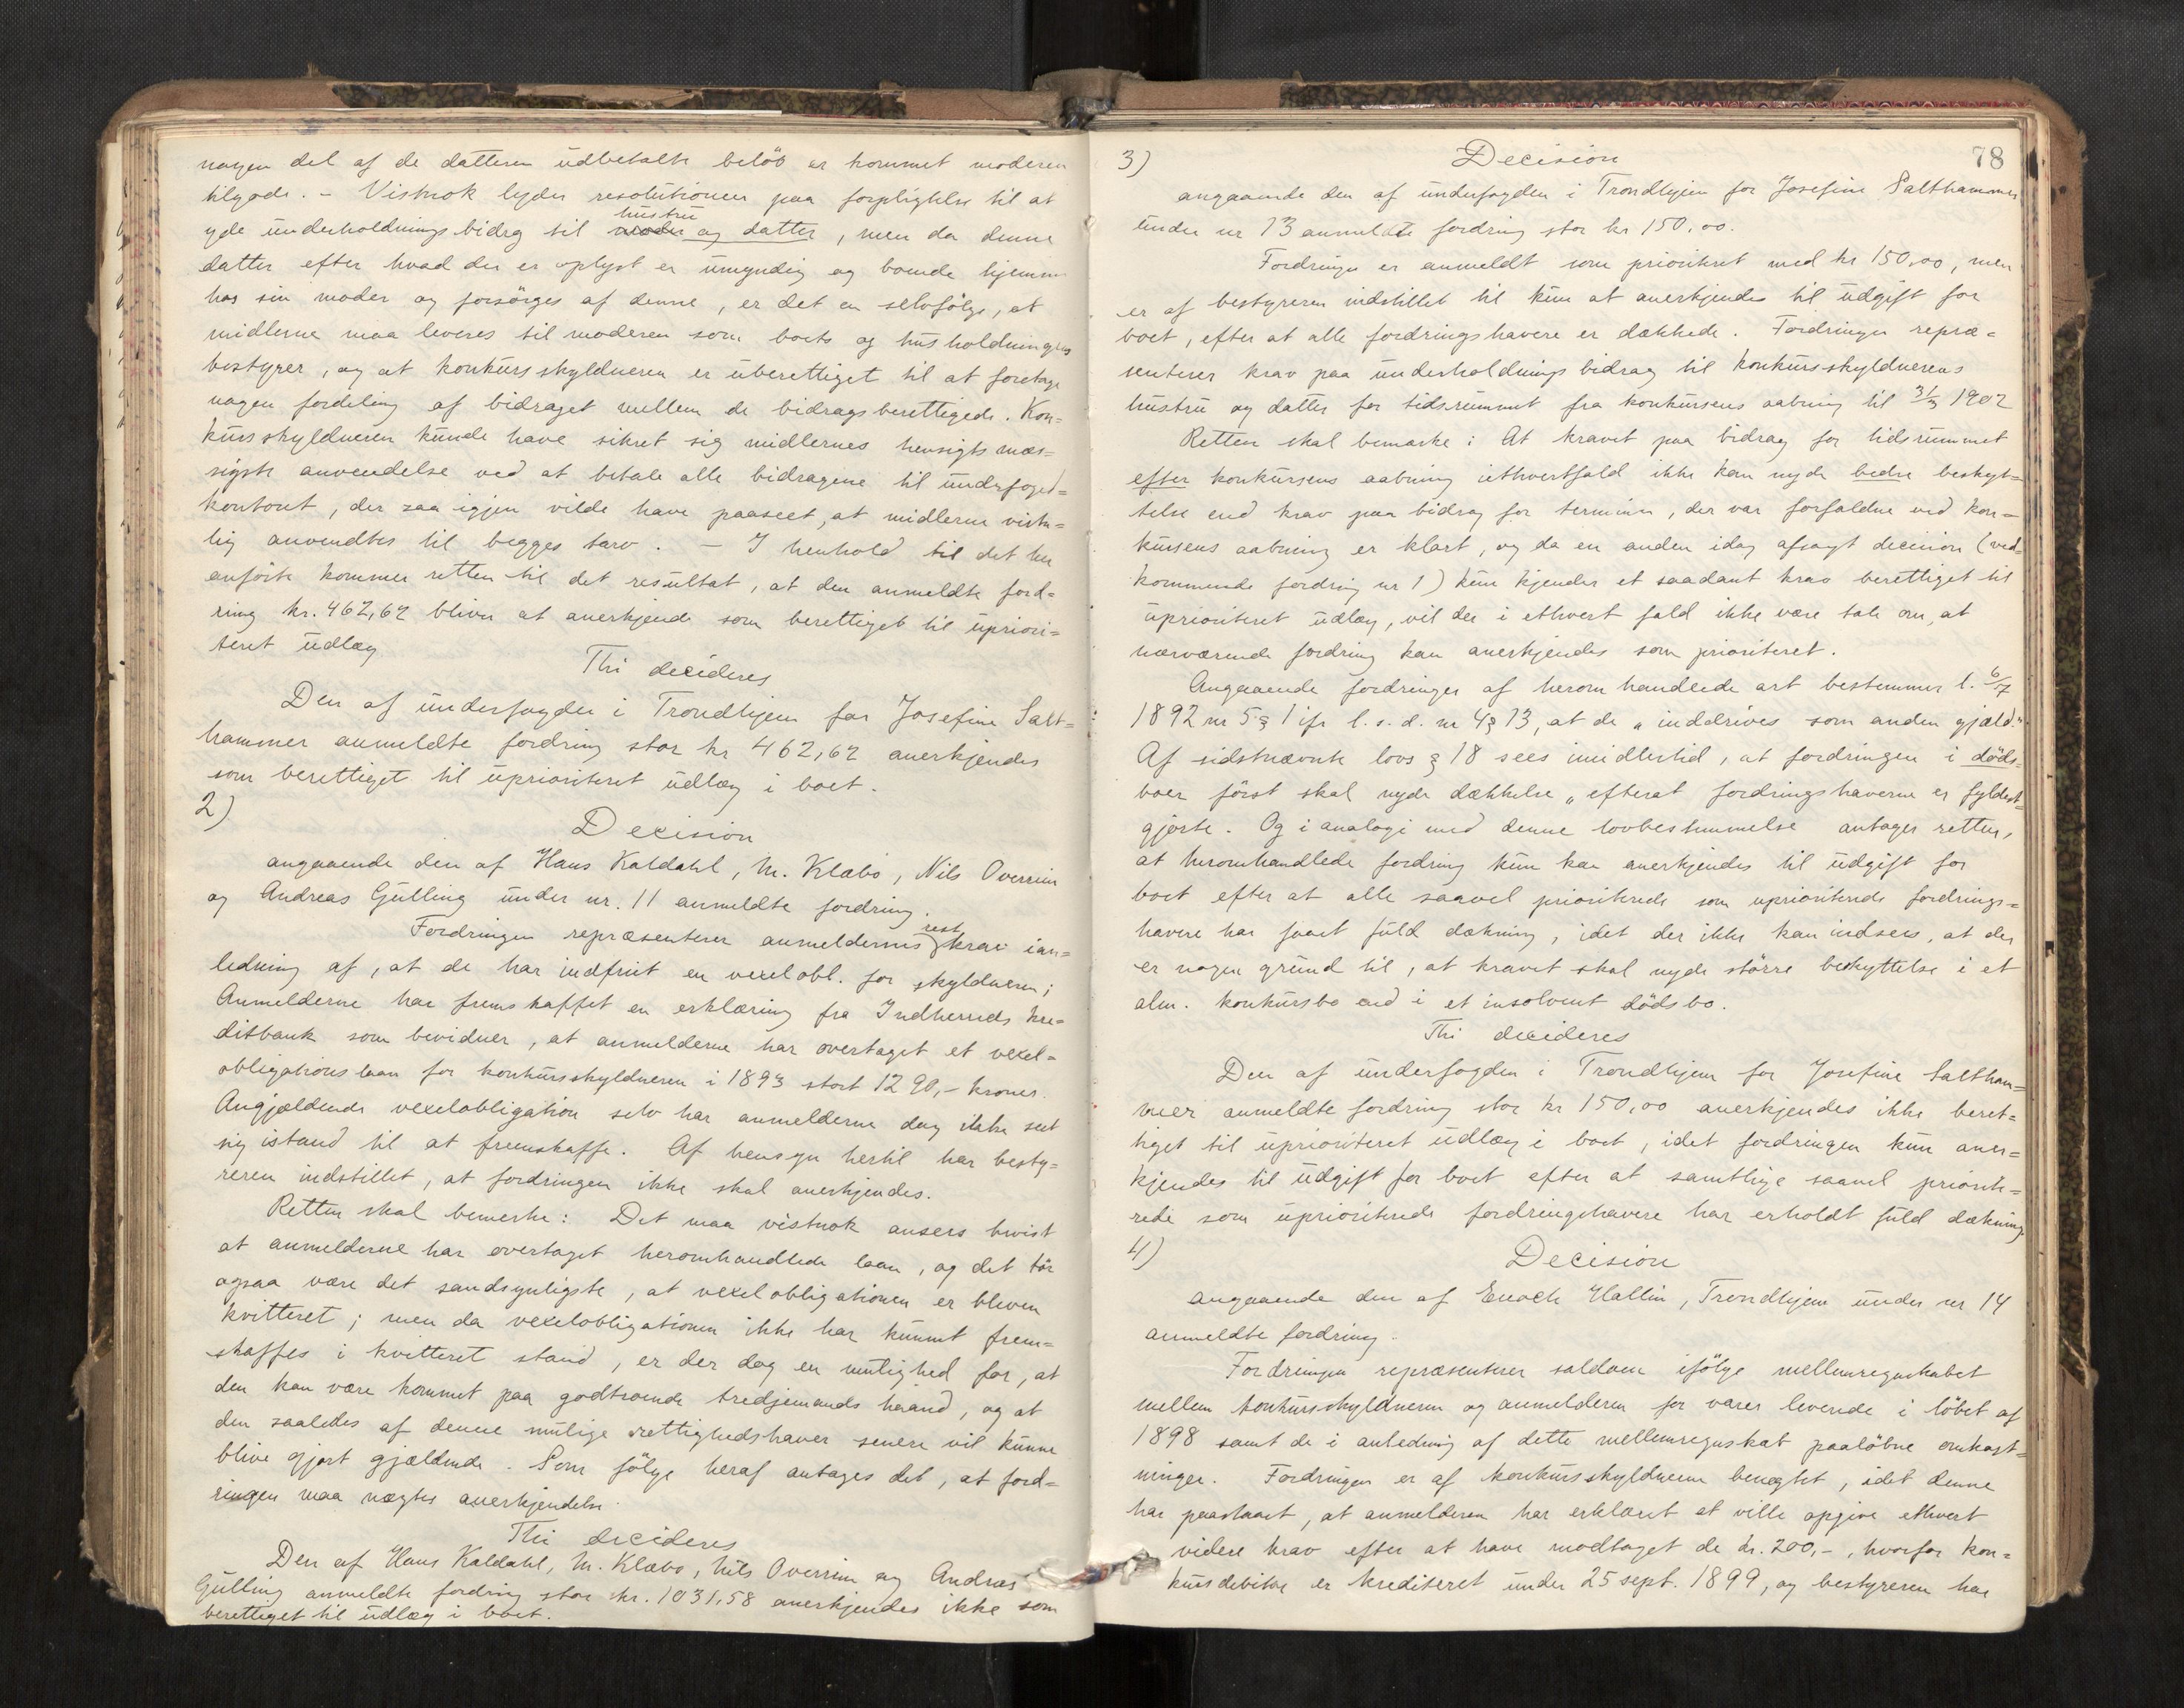 nogen del af de datteren udbetalte beløb er kommet moderen
tilgode. - Vistnok lyder resolutionen paa forpligtelse til at
yde underholdningsbidrag til moder hustru og datter, men da denne
datter efter hvad der er oplyst er umyndig og boende hjemme
hos sin moder og forsørges af denne, er det en selvfølge, at
midlerne maa leveres til moderen som boets og husholdningens
bestyrer, og at konkursskyldneren er uberettiget til at foretage
nogen fordeling af bidraget mellem de bidragsberettigede. Kon=
kursskyldneren kunde have sikret sig midlernes hensigtsmæs=
sigste anvendelse ved at betale alle bidragene til underfoged=
kontoret, der saa igjen vilde have paaseet, at midlerne virke=
lig anvendtes til begges tarv. - I henhold til det her
anførte kommer retten til det resultat, at den anmeldte ford=
ring kr. 462,62 bliver at anerkjende som berettiget til upriori=
teret udlæg
Thi decideres
Den af underfogden i Trondhjem for Josefine Salt=
hammer anmeldte fordring stor kr 462,62 anerkjendes
som berettiget til uprioriteret udlæg i boet.
2)
Decision
angaaende den af Hans Kaldahl, M. Klæbo, Nils Overrein
og Andreas Gulling under nr. 11 anmeldte fordring.
Fordringen repræsenterer anmeldernes restkrav ian=
ledning af, at de har indfriet en vexelobl. for skyldneren;
Anmelderne har fremskaffet en erklæring fra Indherreds kre=
ditbank som bevidner, at anmelderne har overtaget et vexel=
obligationslaan for konkursskyldneren i 1893 stort 1290,- kroner.
Angjældende vexelobligation selv har anmelderne dog ikke seet
sig istand til at fremskaffe. Af hensyn hertil har besty=
reren indstillet, at fordringen ikke skal anerkjendes.
Retten skal bemerke: Det maa vistnok ansees bevist
at anmelderne har overtaget heromhandlede laan, og det tør
ogsaa være det sandsynligste, at vexelobligationen er bleven
kvitteret; men da vexelobligationen ikke har kunnet frem=
skaffes i kvitteret stand, er der dog en mulighed for, at
den kan være kommet paa godtroende tredjemands haand, og at
den saaledes af denne mulige rettighedshaver senere vil kunne
blive gjort gjældende. Som følge heraf antages det, at ford=
ringen maa nægtes anerkjendelse.
Thi decideres
Den af Hans Kaldahl, M. Klæbo, Nils Overrein og Andreas
Gulling anmeldte fordring stor kr. 1031,58 anerkjendes ikke som
berettiget til udlæg i boet.
78
3)
Decision
angaaende den af underfogden i Trondhjem for Josefine Salthammer
under nr 13 anmeldte fordring stor kr 150,00.
Fordringen er anmeldt som prioriteret med kr 150,00, men
er af bestyreren indstillet til kun at anerkjendes til udgift for
boet, efter at alle fordringshavere er dækkede. Fordringen repræ=
senterer krav paa underholdningsbidrag til konkursskyldnerens
hustru og datter for tidsrummet fra konkursens aabning til 31/3 1902
Retten skal bemærke: At kravet paa bidrag for tidsrummet
efter konkursens aabning iethvertfald ikke kan nyde bedre beskyt=
telse end krav paa bidrag for terminer, der var forfaldne ved kon=
kursens aabning er klart, og da en anden idag afsagt decision (ved=
kommende fordring nr 1) kun kjender et saadant krav berettiget til
uprioriteret udlæg, vil der i ethvert fald ikke være tale om, at
nærværende fordring kan anerkjendes som prioriteret.
Angaaende fordringer af herom handlede art bestemmer l. 6/7
1892 nr 5 § 1 ifr l. s. d. nr 4 § 13, at de „inddrives som anden gjæld."
Af sidstnævnte lovs § 18 sees imidlertid, at fordringen i døds=
boer først skal nyde dækkelse „efterat fordringshaverne er fyldest=
gjorte. Og i analogi med denne lovbestemmelse antager retten,
at heromhandlede fordring kun kan anerkjendes til udgift for
boet efter at alle saavel prioriterede som uprioriterede fordrings=
havere har faaet fuld dækning, idet der ikke kan indsees, at der
er nogen grund til, at kravet skal nyde større beskyttelse i et
alm. konkursbo end i et insolvent dødsbo.
Thi decideres
Den af underfogden i Trondhjem for Josefine Saltham=
mer anmeldte fordring stor kr 150,00 anerkjendes ikke beret=
tiget til uprioriteret udlæg i boet, idet fordringen kun aner=
kjendes til udgift for boet efter at samtlige saavel priorite=
rede som uprioriterede fordringshavere har erholdt fuld dækning.
4)
Decision
angaaende den af Enoch Hallin, Trondhjem under nr 14
anmeldte fordring.
Fordringen repræsenterer saldoen ifølge mellemregnskabet
mellem konkursskyldneren og anmelderen for varer leverede i løbet af
1898 samt de i anledning af dette mellemregnskab paaløbne omkost=
ninger. Fordringen er af konkursskyldneren benegtet, idet denne
har paastaaet, at anmelderen har erklæret at ville opgive ethvert
videre krav efter at have modtaget de kr. 200,-, hvorfor kon=
kursdebitor er krediteret under 25 sept. 1899, og bestyreren har